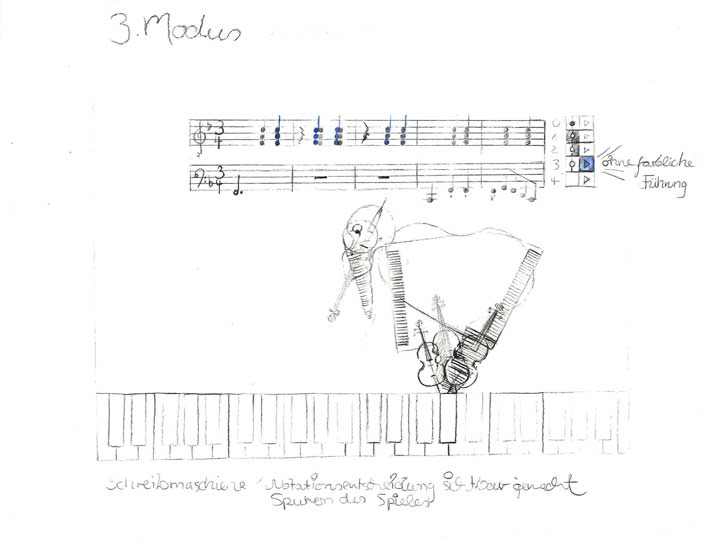 3. Modus
3
4
0
1
2
3
4
ohne farbliche
Führung
3
4
Schreibmaschiene / Notationsentscheidung sichtbar gemacht
Spuren des Spieler